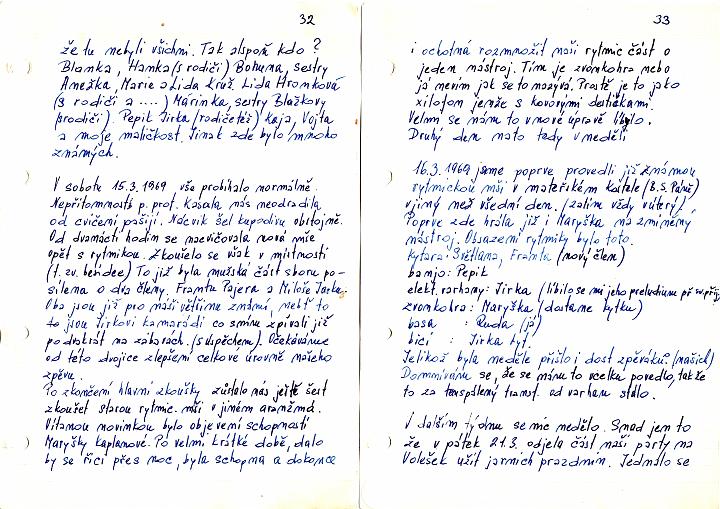 32
že tu nebyli všichni. Tak alespoň kdo?
Blanka, Hanka (s rodiči) Bohuna, sestry
Anežka, Marie a Lída Krůž. Lída Hromková
(s rodiči a ....) Marinka, sestry Blažkovy
(rodiči). Pepík Jirka (rodičetéž) Kája, Vojta
a moje maličkost. Jinak zde bylo mnoho
známých.
V sobotu 15.3.1969 vše probíhalo normálně.
Nepřítomnost p. prof. Kasala nás neodradila
od cvičení pašijí. Nácvik šel kupodivu obstojně.
Od dvanácti hodin se nacvičovala nová mše
opět s rytmikou. Zkoušelo se však v místnosti
(t. zv. hernidee) To již byla mužská část sboru po-
sílena o dva členy Frantu Pajera a Miloše Jarka.
Oba jsou již pro naši většinu známí, neboť to
to jsou Jirkovi kamarádi co s námi zpívali již
po dvakrát na zábavách. (s úspěchem). Očekáváme
od této dvojice zlepšení celkové úrovně našeho
zpěvu.
Po skončení hlavní zkoušky zůstalo nás ještě šest
zkoušet starou rytmic. mši v jiném aranžmá.
Vítanou novinkou bylo objevení schopností
Maryšky Kaplanové. Po velmi krátké době, dalo
by se říci přes noc, byla schopna a dokonce
33
i ochotná rozmnožit naši rytmic část o
jeden nástroj. Tím je zvonkohra nebo
já nevím jak se to nazývá. Prostě je to jako
xilofon jenže s kovovými destičkami.
Velmi se nám to v nové úpravě líbilo.
Druhý den nato tedy v neděli
16.3.1969 jsme poprve provedli již známou
rytmickou mši v mateřském kostele (B.S. Páně)
v jiný než všední den. (zatím vždy úterý)
Poprve zde hrála již i Maryška na zmíněný
nástroj. Obsazení rytmiky bylo toto.
Kytara: Světlana, Franta (nový člen)
banjo: Pepík
elekt. varhany: Jirka (líbilo se mi jeho preludium př sv. příj.
zvonkohra: Maryška (dostane kytku)
basa : Ruda (já)
bicí : Jirka Lyt.
Jelikož byla neděle přišlo i dost zpěváků. (našich)
Domnívám se, že se nám to vcelka povedlo, takže
to za ten spálený transf. od varhan stálo.
V dalším týdnu se nic nedělo. Snad jen to
že v pátek 21.3. odjela část naší party na
Volešek užít jarních prázdnin. Jednalo se